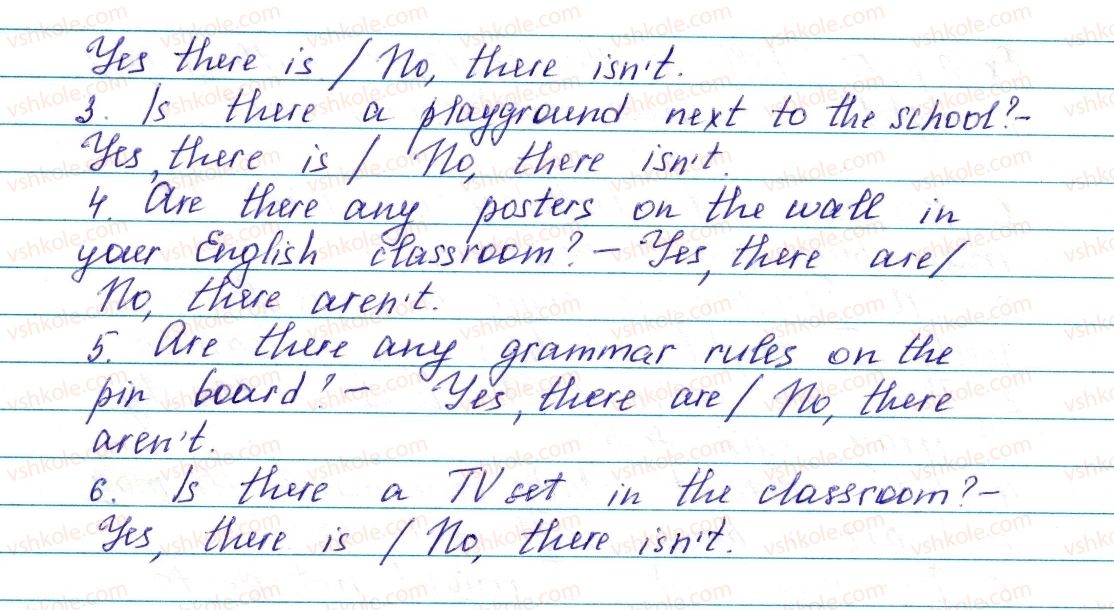 Yes there is / No, there isn't.
3. Is there a playground next to the school? -
Yes, there is / No, there isn't.
4. Are there any posters on the wall in
your English classroom? - Yes, there are /
No, there aren't.
5. Are there any grammar rules on the
pin board? - Yes, there are / No, there
aren't.
6. Is there a TV set in the classroom? -
Yes, there is / No, there isn't.